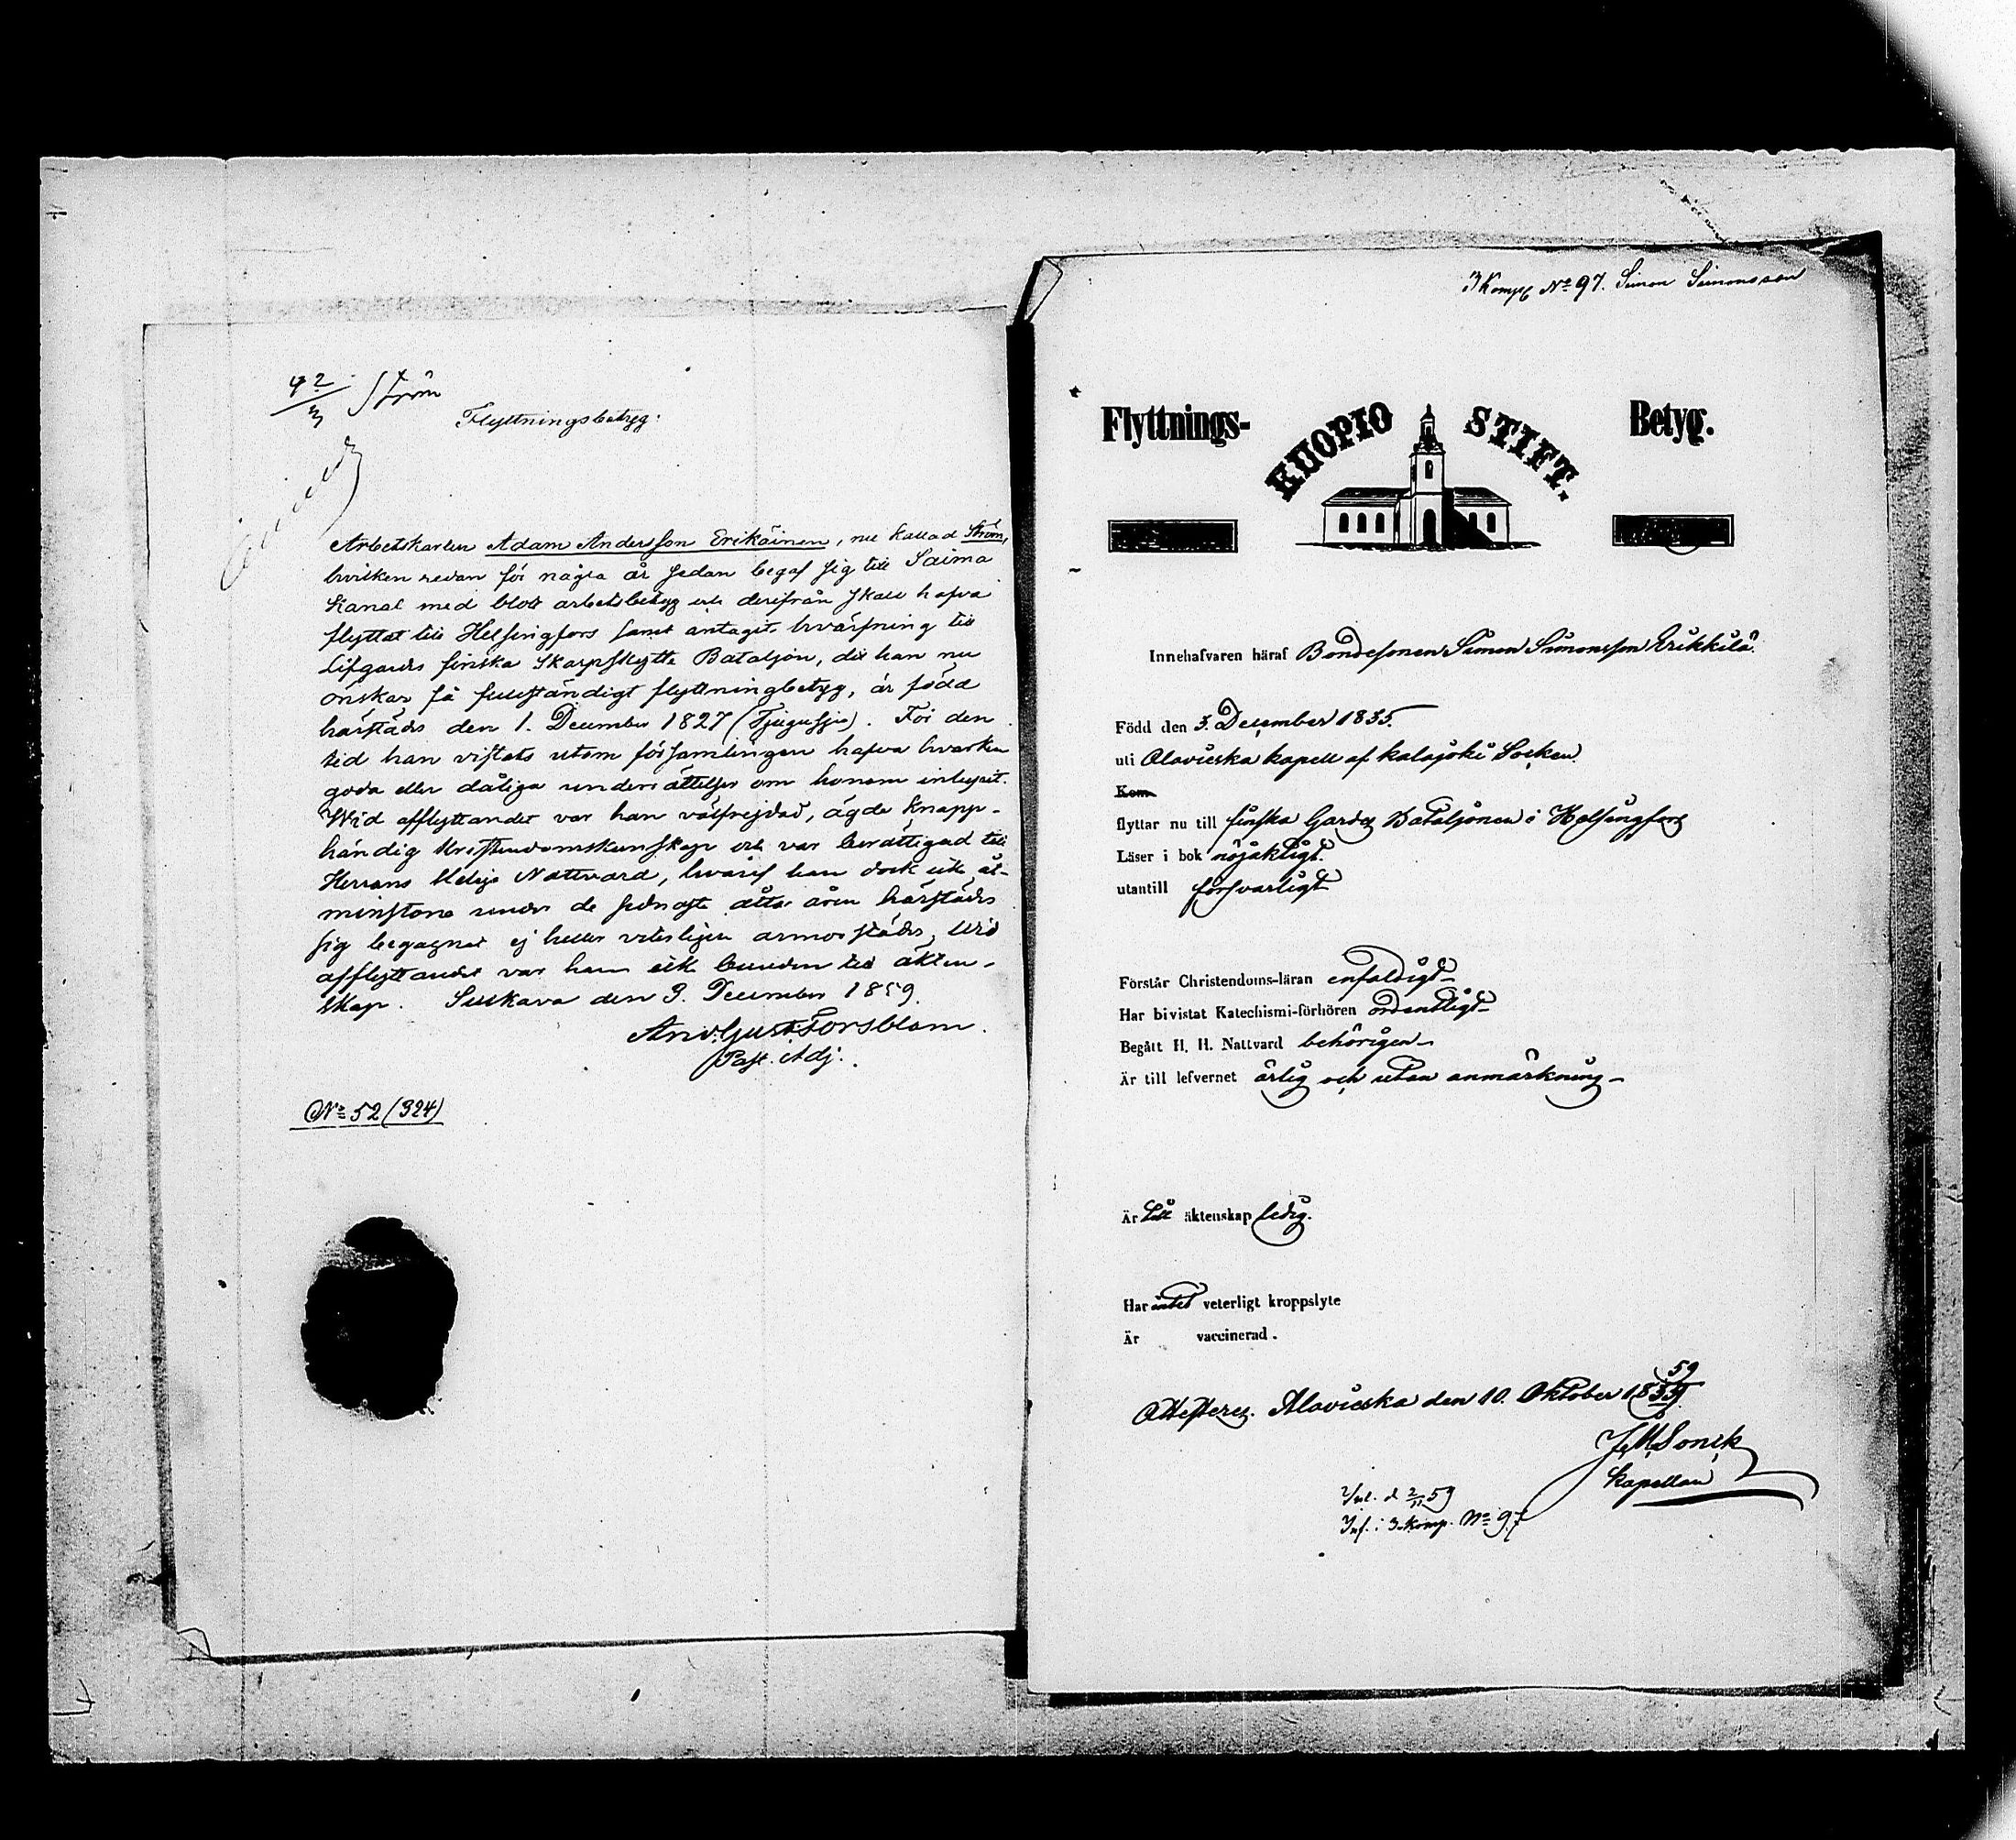 92/3 Ström
Flyttningsbetyg.
Arbetskarlen Adam Andersson Erikäinen, nu kallad Ström,
hvilken redan för några år sedan begaf sig till Saima
Kanal med blott arbetsbetyg och derifrån skall hafva
flyttat till Helsingfors samt antagit hvärfning till
Lifgardes finska Skarpskytte Bataljon, dit han nu
önskar få fullständigt flyttningbetyg, är född
härstädes den 1. December 1827 (Tjugusju). För den
tid han vistats utom församlingen hafva hvarken
goda eller dåliga underrättelser om honom inlupit.
Wid afflyttandet var han välfrejdad, ägde knapp-
händig Kristendomskunskap och var berättigad till
Herrans Heliga Nattvard, hvaraf han dock icke åt-
minstone under de sednaste åtta åren härstädes
sig begagnat ej heller veterligen annorstädes. Wid
afflyttandet var han icke bunden till äkten-
skap. Suskava den 9. December 1859.
And. Gust. Forsblom.
Past. Adj.
No 52 (324)
3 Komp No 97. Simon Simonsson
Flyttnings- KUOPIO STIFT. Betyg.
Innehafvaren häraf Bondesonen Simon Simonsson Erikkilä.
Född den 3. December 1835.
uti Alavieska kapell af Kalajoki Socken
Kom
flyttar nu till finska Gardes Bataljonen i Helsingfors
Läser i bok nöjaktigt.
utantill försvarligt
Förstår Christendoms-läran enfaldigt
Har bivistat Katechismi-förhören ordentligt
Begått H. H. Nattvard behörigen
Är till lefvernet ärlig och utan anmärkning
Är till äktenskap ledig.
Har intet veterligt kroppslyte
Är vaccinerad.
59
Attesterez. Alavieska den 10. Oktober 1835
J. M. Sonck
Kapellan
Inl. d 2/11 59
Inf. i 3. Komp. No 97